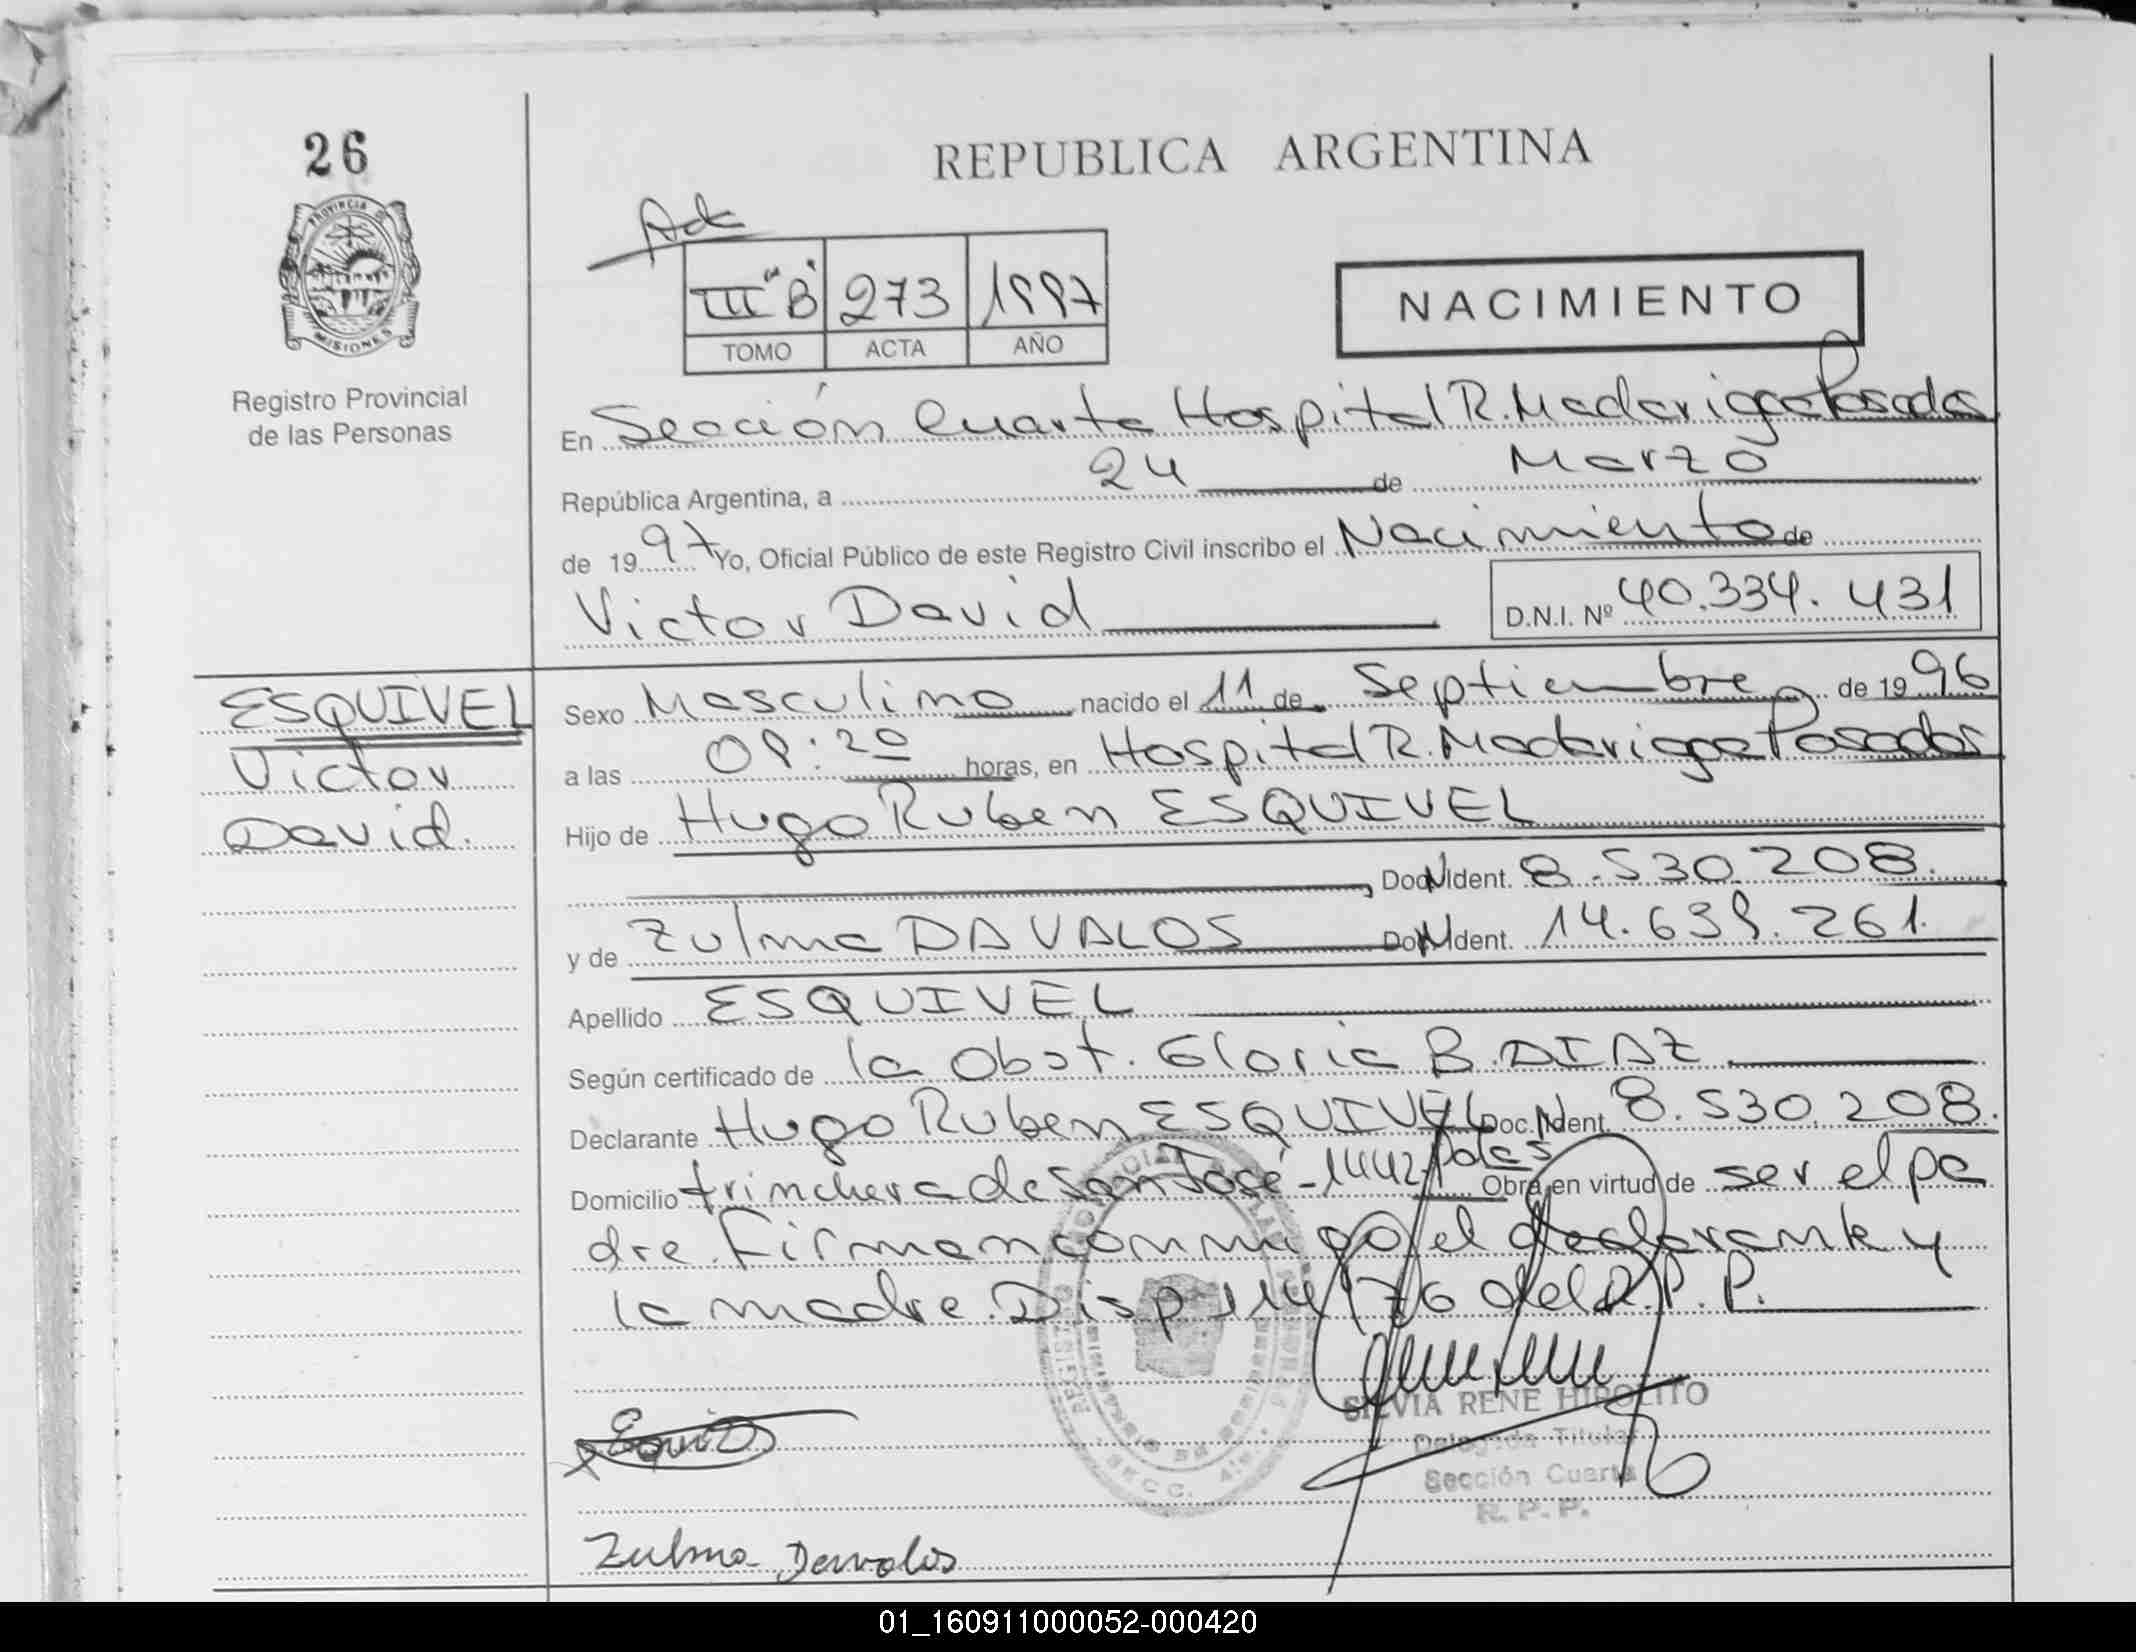 26
REPUBLICA ARGENTINA
PROVINCIA DE
MISIONES
III "B" 273 1997
TOMO ACTA AÑO
NACIMIENTO
Registro Provincial
de las Personas
En Sección Cuarta Hospital R. Madariaga Posadas
República Argentina, a 24 de Marzo
de 1997 Yo, Oficial Público de este Registro Civil inscribo el Nacimiento de
Victor David
D.N.I. Nº 40.334.431
ESQUIVEL
Victor
David.
Sexo Masculino nacido el 11 de Septiembre de 1996
a las 08:20 horas, en Hospital R. Madariaga Posadas
Hijo de Hugo Ruben ESQUIVEL
Doc. Ident. 8.530.208.
y de Zulma DAVALOS Doc. Ident. 14.639.261.
Apellido ESQUIVEL
Según certificado de la Obst. Gloria B. DIAZ
Declarante Hugo Ruben ESQUIVEL Doc. Ident. 8.530.208.
Domicilio trinchera de San José - 1442 - Pdas Obra en virtud de ser el pa
dre. Firman conmigo el declarante y
la madre. Disp 114/76 del R.P.P.
SILVIA RENE HIPOLITO
Delegada Titular
Sección Cuarta
R. P. P.
Zulma Davalos
01_160911000052-000420